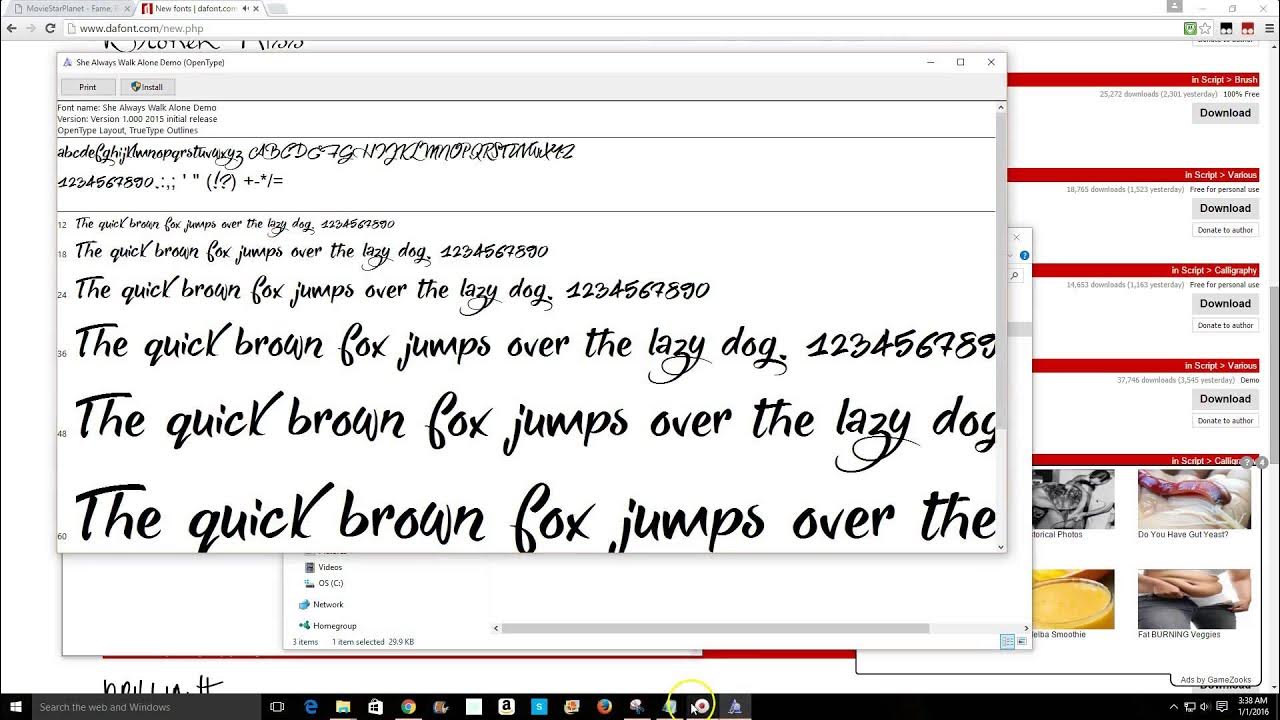 MovieStarPlanet - Fame, F
New fonts | dafont.com
www.dafont.com/new.php
She Always Walk Alone Demo (OpenType)
Print
Install
Font name: She Always Walk Alone Demo
Version: Version 1.000 2015 initial release
OpenType Layout, TrueType Outlines
abcdefghijklmnopqrstuvwxyz ABCDEFGHIJKLMNOPQRSTUVWXYZ
1234567890.:,; ' " (!?) +-*/=
12 The quick brown fox jumps over the lazy dog. 1234567890
18 The quick brown fox jumps over the lazy dog. 1234567890
24 The quick brown fox jumps over the lazy dog. 1234567890
36 The quick brown fox jumps over the lazy dog. 123456789
48 The quick brown fox jumps over the lazy dog
60 The quick brown fox jumps over the
in Script > Brush
25,272 downloads (2,301 yesterday) 100% Free
Download
in Script > Various
18,765 downloads (1,523 yesterday) Free for personal use
Download
Donate to author
in Script > Calligraphy
14,653 downloads (1,163 yesterday) Free for personal use
Download
Donate to author
in Script > Various
37,746 downloads (3,545 yesterday) Demo
Download
Donate to author
in Script > Calligraphy
? 4
torical Photos
Do You Have Gut Yeast?
elba Smoothie
Fat BURNING Veggies
Ads by GameZooks
Videos
OS (C:)
Network
Homegroup
3 items 1 item selected 29.9 KB
Search the web and Windows
3:38 AM
1/1/2016